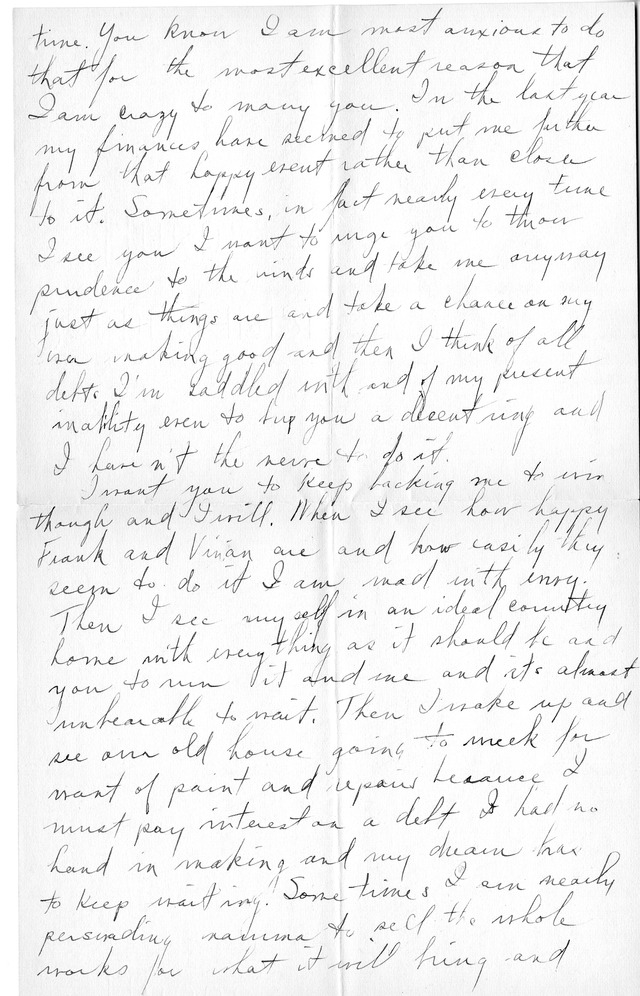 time. You know I am most anxious to do
that for the most excellent reason that
I am crazy to marry you. In the last year
my finances have seemed to put me further
from that happy event rather than closer
to it. Sometimes, in fact nearly every time
I see you I want to urge you to throw
prudence to the winds and take me anyway
just as things are and take a chance on my
ever making good and then I think of all
debts I'm saddled with and of my present
inability even to buy you a decent ring and
I haven't the nerve to do it.
I want you to keep backing me to win
though and I will. When I see how happy
Frank and Vivian are and how easily they
seem to do it I am mad with envy.
Then I see myself in an ideal country
home with everything as it should be and
you to run it and me and its almost
unbearable to wait. Then I wake up and
see our old house going to wreck for
want of paint and repairs because I
must pay interest on a debt I had no
hand in making and my dream has
to keep waiting! Some times I am nearly
persuading mamma to sell the whole
works for what it will bring and